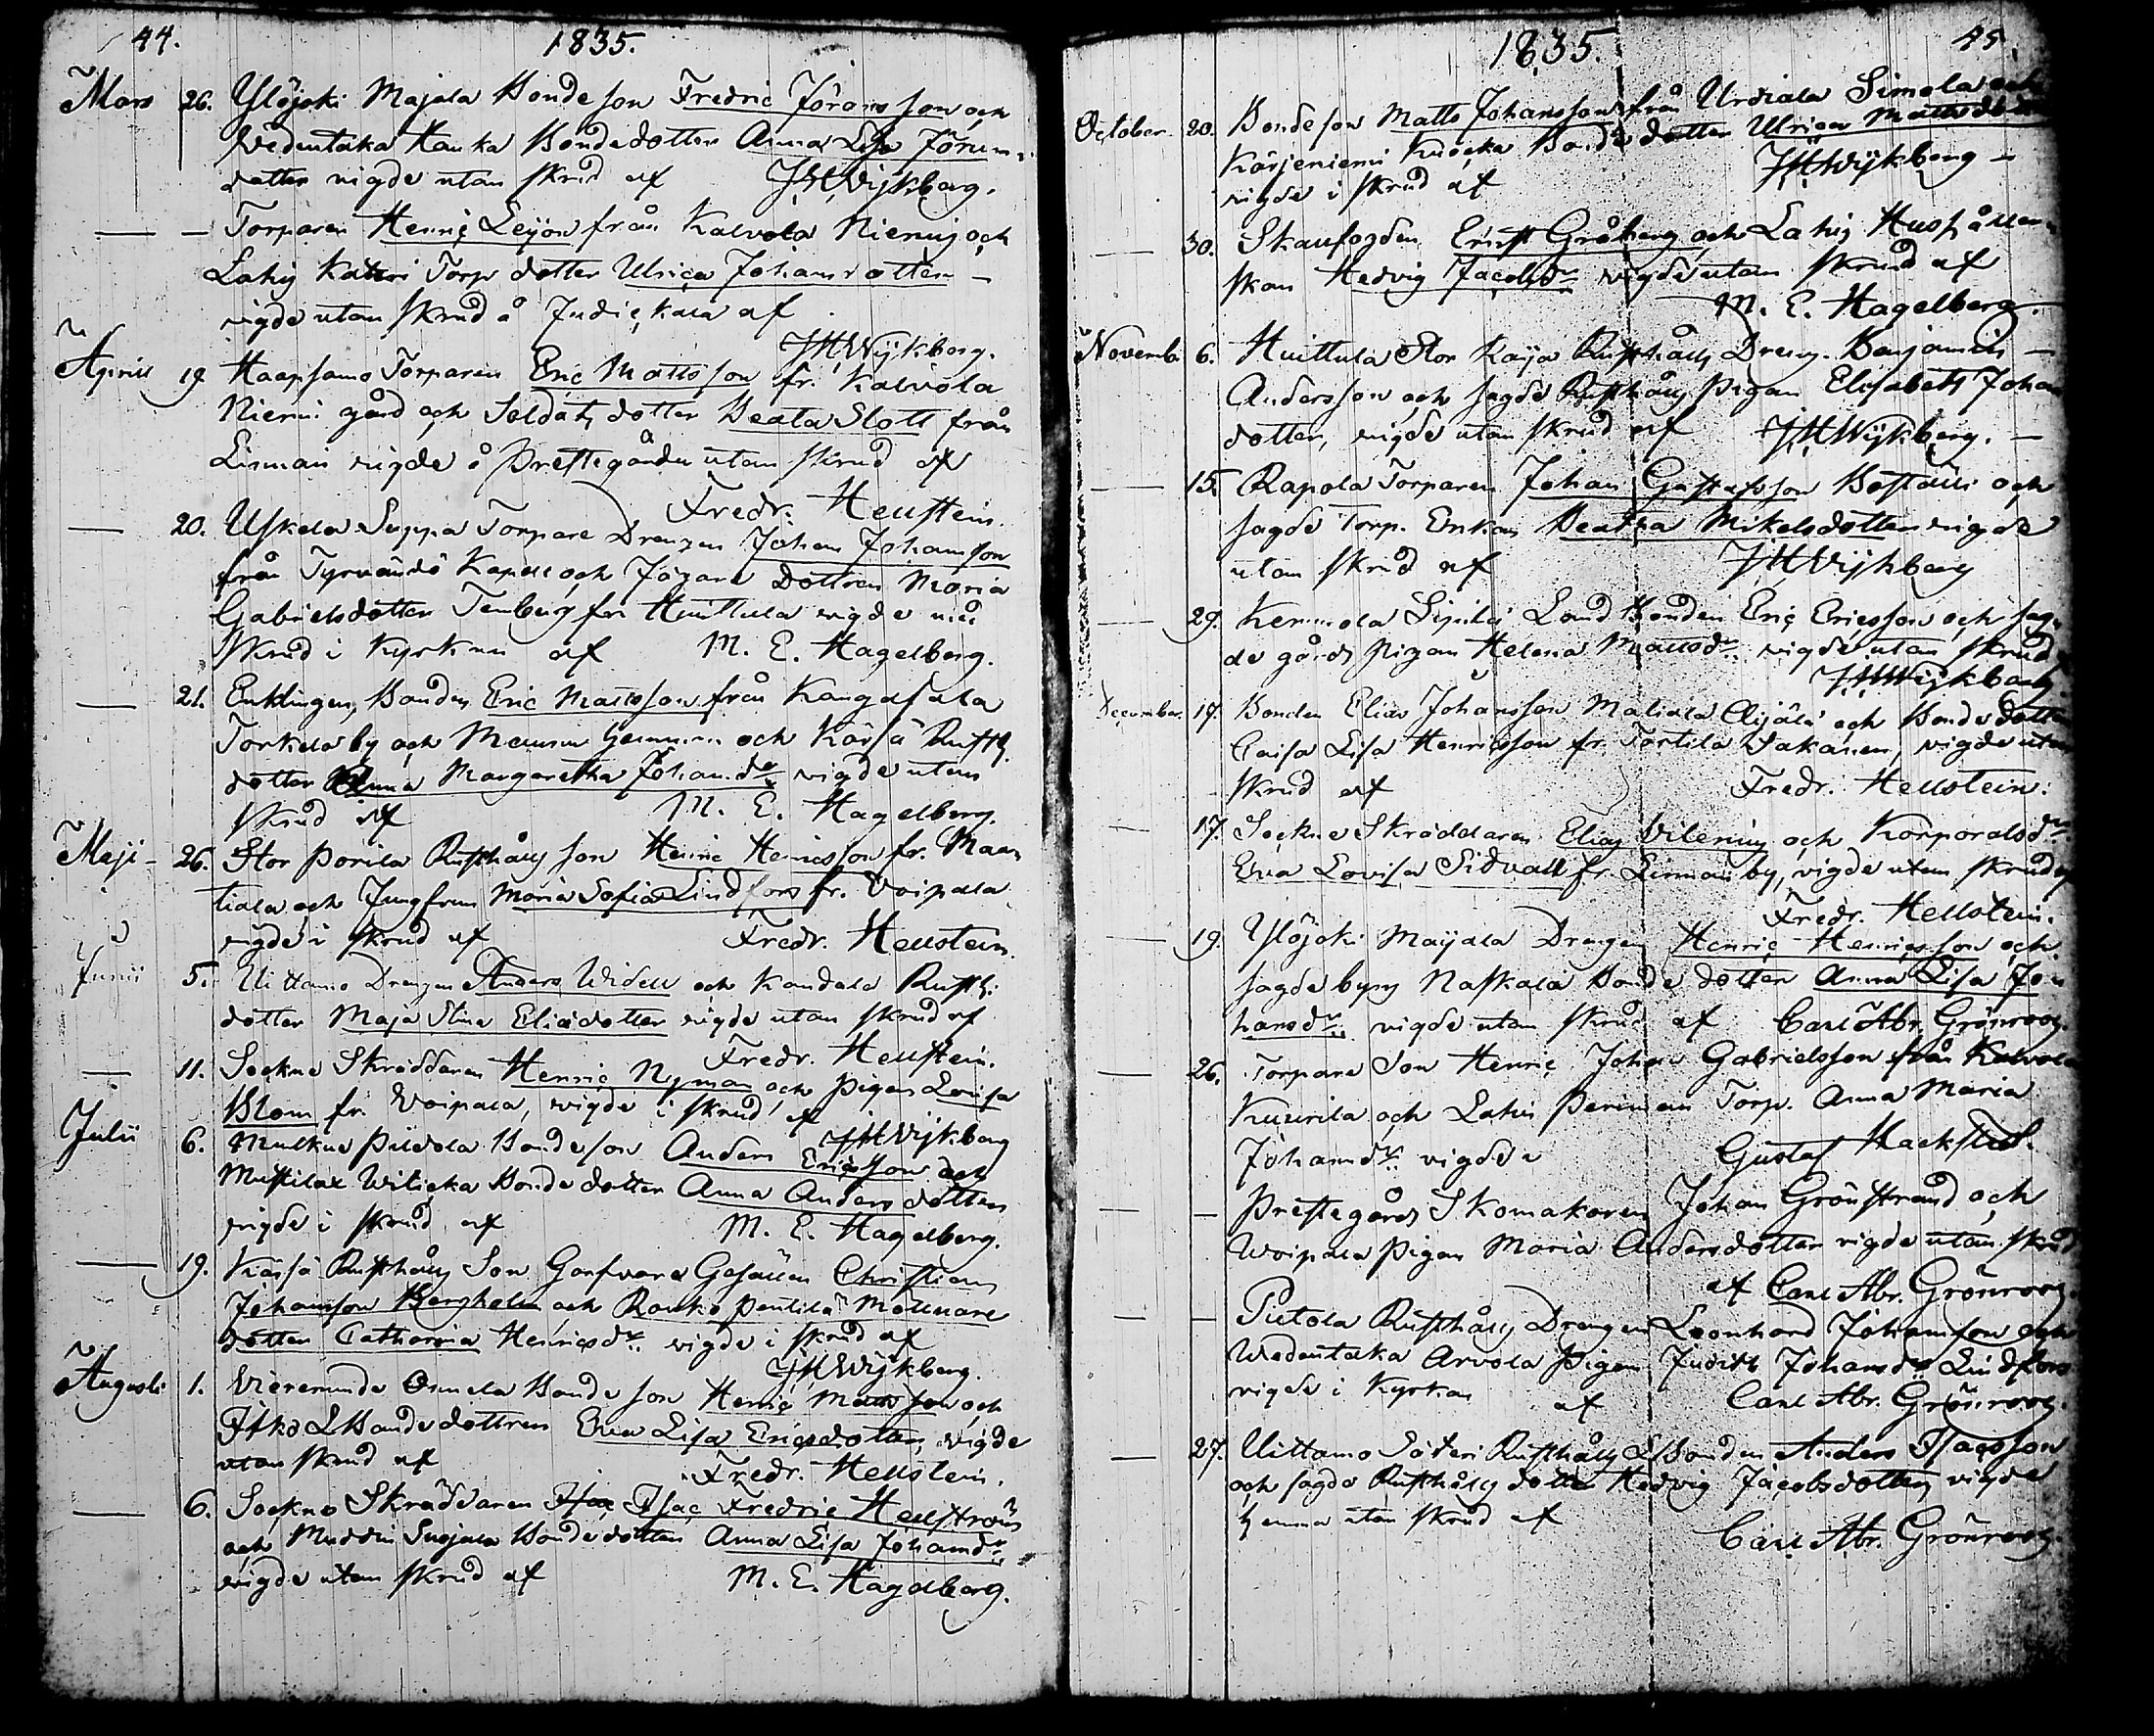 44.
1835.
Mars 26. Ylöjoki Majala Bondeson Fredric Jöransson och
Wedentaka Kauka Bondedotter Anna Lisa Jöruns
dotter vigde utan skrud af JHWijkberg.
— — Torparen Henric Leijon från Kalvola Niemis och
Lahis Kateri Torp dotter Ulrica Johansdotter —
vigde utan skrud å Judickala af
JHWijkberg.
Aprill 19 Haapsamo Torparen Eric Mattsson fr. Kalvola
Niemi gård och Soldats dotter Beata Slott från
Linmais vigde å Prestegården utan skrud af
Fredr. Hellstein.
— 20. Uskela Seppä Torpare Drengen Johan Johansson
från Tyrvändö Kapell och Jägare Dottren Maria
Gabrielsdotter Tenberg fr. Huittula vigde med
skrud i Kyrkan af M. E. Hagelberg.
— 21. Enklingen, Bonden Eric Mattsson från Kangasala
Torkela by och och Kärsä Rusth.
dotter Anna Margaretha Johansdr vigde utan
skrud af M. E. Hagelberg.
Maji — 26. Stor Porila Rusthålls son Henric Henricsson fr. Maa,
tiala och Jungfrun Maria Sofia Lindfors fr. Voipala
vigde i skrud af Fredr. Hellstein.
Junii 5. Uittamo Drengen Anders Widell och Kandala Rusth.
dotter Maja Stina Eliædotter vigde utan skrud af
Fredr. Hellstein.
— 11. Sockne Skräddaren Henric Nyman och Pigan Lovisa
Blom fr. Voipala, vigde i skrud af
JHWijkberg
Julii 6. Mulkue Puvola Bondeson Anders Ericsson och
Mustila Witicka Bonde dotter Anna Anders dotter
vigde i skrud af M. E. Hagelberg.
— 19. Kärsä Rusthålls Son Garfvare Gesällen Christian
Johansson Bergholm och Rauko Pentilä Möllnare
dotter Catharina Henricsdr. vigde i skrud af
JHWijkberg.
Augusti 1. Vieremunde Ounela Bonde son Henric Mattsson och
LBonde dottren Eva Lisa Ericsdotter, vigde
utan skrud af Fredr. Hellstein.
— 6. Sockne Skräddaren Isac Isac Fredric Hellström
och Muddis Suojala Bondedotter Anna Lisa Johansdr.
vigde utan skrud af M. E. Hagelberg.
1835.
45.
October 20. Bondeson Matts Johansson från Urdiala Simola och
Kärjeniemi Knocka Bonde dotter Ulrica Mattsdotter
vigde i skrud af JHWijkberg —
— 30. Skaufogden Ernst Gråberg och Lahis Hushållers,
skan Hedvig Jacobsdr vigde utan skrud af
M. E. Hagelberg.
Novemb. 6. Huittula Stor Kaija Rusthålls Dreng. Benjamin —
Andersson och sagde Rusthålls Pigan Elisabeth Johans
dotter, vigde utan skrud af JHWijkberg. —
— 15. Rapola Torparen Johan Gustafsson Boställi och
sagde Torp. Enkan Beata Mikelsdotter vigde
utan skrud af JHWijkberg
— 29. Kemmola Sipilä Land Bonden Eric Ericsson och sag,
de gårds Pigan Helena Mattsdr. vigde utan skrud
JHWijkberg.
December. 17. Bonden Elias Johansson Matiala Äijälä och Bonde dotter
Caisa Lisa Henricsson fr. Tortila Jakanen, vigde utan
skrud af Fredr. Hellstein.
— 17. Sockne Skräddaren Elias Vilenius och Korporalsdr
Eva Lovisa Sidvall fr. Linmais by, vigde utan skrud af
Fredr. Hellstein.
— 19. Ylöjoki Maijala Drengen Henric Henricsson och
sagde bys Naskala Bonde dotter Anna Lisa Jo,
hansdr. vigde utan skrud af Carl Abr. Grönroos.
— 26. Torpare Son Henric Johan Gabrielsson från Kalvola
Kuurila och Lahis Torp. Anna Maria
Johansdr. vigde Gustaf Hackstedt.
— — Prestegårds Skomakaren Johan Grönstrand och
Woipala Pigan Maria Andersdotter vigde utan skrud
af Carl Abr. Grönroos.
— — Pietola Rusthålls Drengen Leonhard Johansson och
Wedentaka Arvola Pigan Judith Johansdr Lindfors
vigde i Kyrkan af Carl Abr. Grönroos.
— 27. Uittamo Säteri Rusthålls LBonden Anders Isacsson
och sagde Rusthålls dotter Hedvig Jacobsdotter vigde
hemma utan skrud af
Carl Abr. Grönroos.